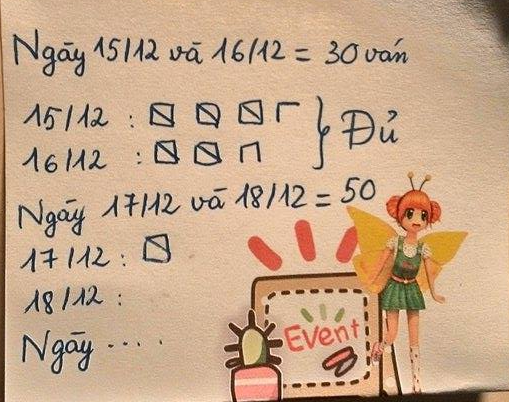 Ngày 15/12 và 16/12 = 30 ván
15/12 :
16/12 :
Đủ
Ngày 17/12 và 18/12 = 50
17/12 :
18/12 :
Ngày ....
Event